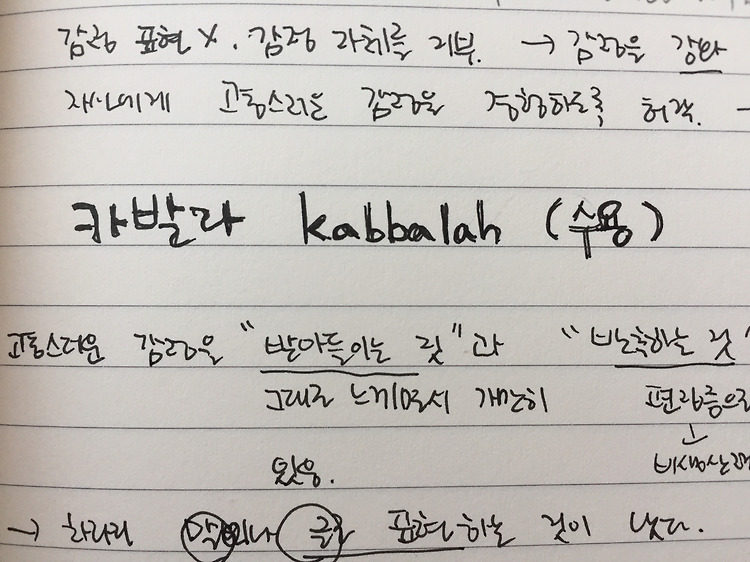 감정 표현 X. 감정 자체를 거부. → 감정을 강화
자신에게 고통스러운 감정을 경험하도록 허락.
카발라 kabbalah (수용)
고통스러운 감정을 "받아들이는 것"과 "반추하는 것"
그대로 느끼면서 가만히 편집증으로
있음. 비생산적
→ 차라리 말이나 글로 표현하는 것이 낫다.